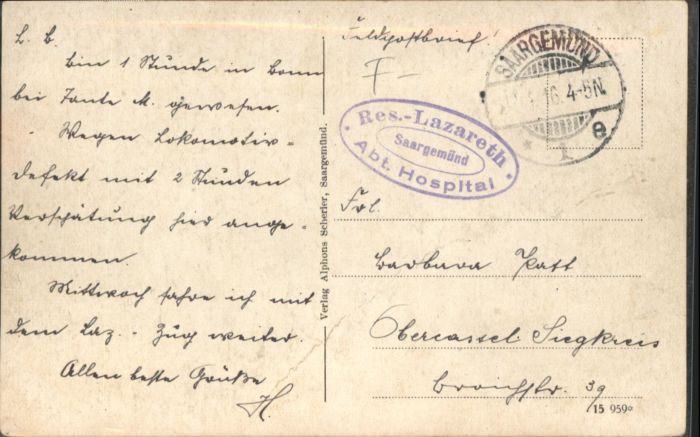 L. B.
Bin 1 Stunde in Bonn
bei Tante M. gewesen.
Wegen Lokomotiv-
defekt mit 2 Stunden
Verspätung hier ange-
kommen.
Mittwoch fahre ich mit
dem Laz.-Zug weiter.
Allen beste Grüße
H
Verlag Alphons Scherler, Saargemünd.
Feldpostbrief!
SAARGEMÜND
16. 4-5N.
* 1 e
Res.-Lazareth
Saargemünd
Abt. Hospital
Frl.
Barbara Patt
Obercassel Siegkreis
Broichstr. 39
15 959*